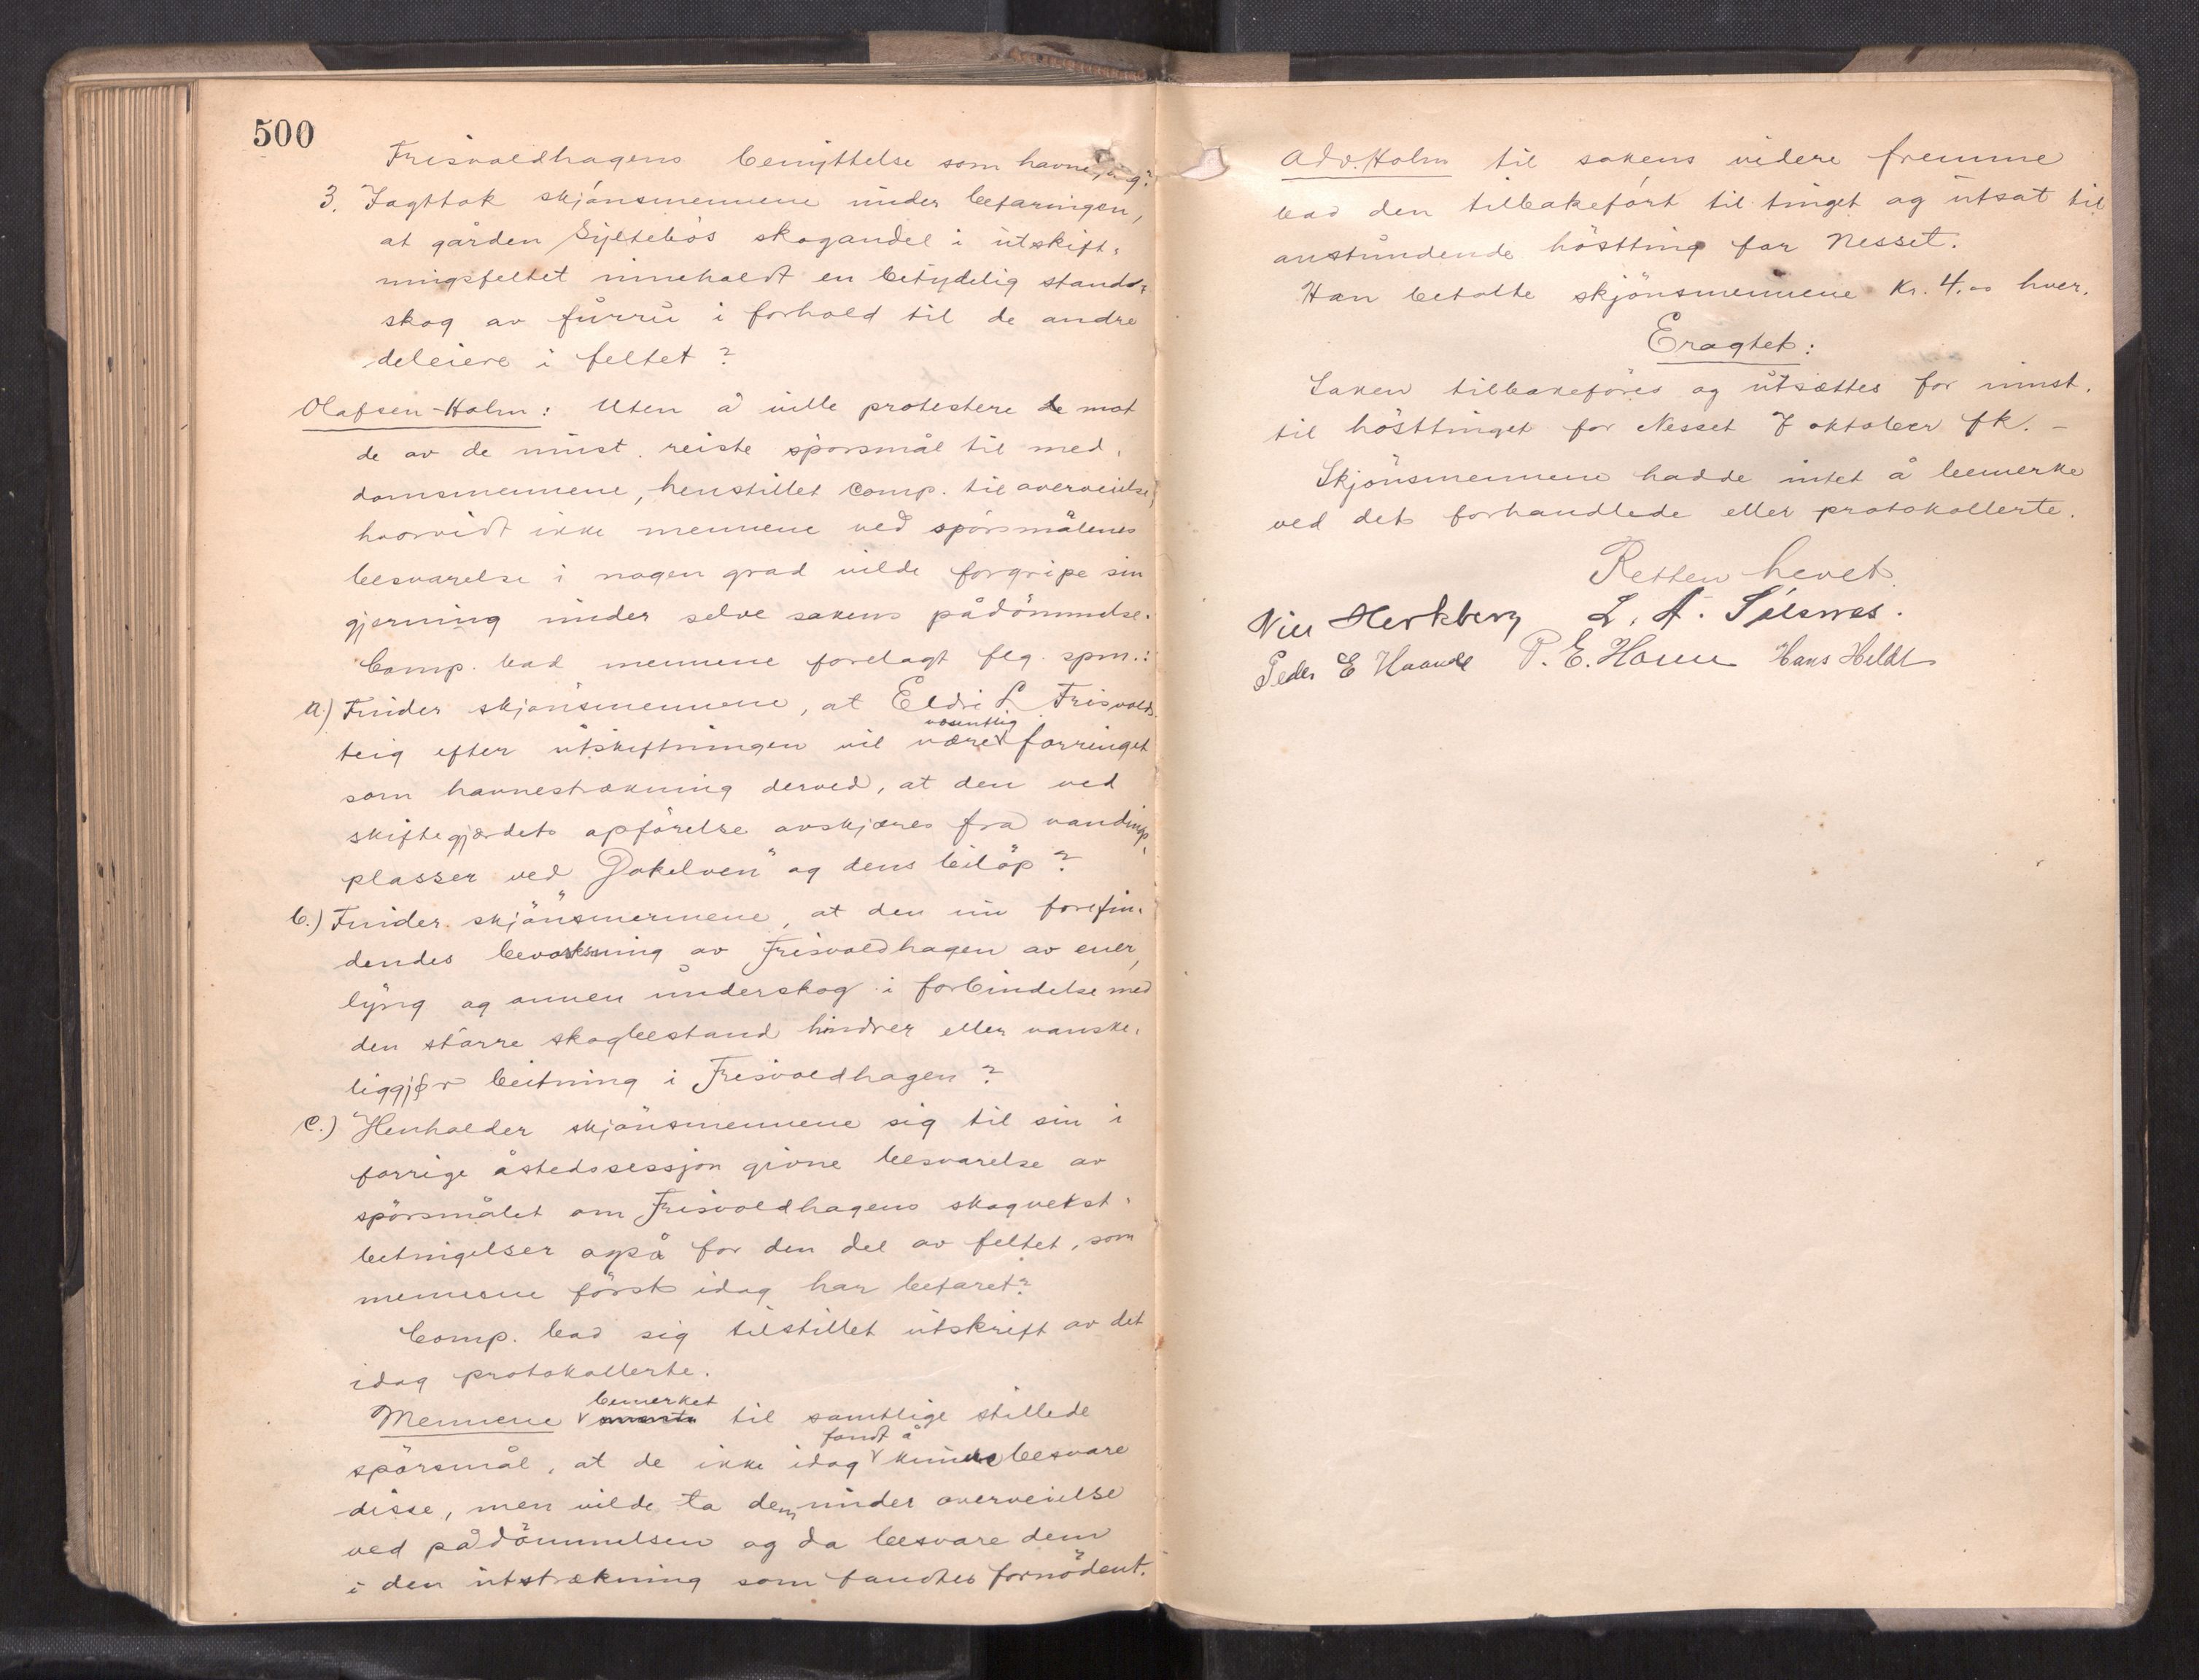 500
Frisvoldhagens benyttelse som havnegang?
3. Iagttok skjönsmennene under befaringen,
at gården Syltebös skogandel i utskift-
ningsfeltet inneholdt en betydelig stands-
skog av furru i forhold til de andre
deleiere i feltet?
Olafsen-Holm: Uten å ville protestere mot
de av de minst. reiste spörsmål til med-
domsmennene, henstillet comp. til overveielse,
hvorvidt ikke mennene ved spörsmålenes
besvarelse i nogen grad vilde forgripe sin
gjerning under selve sakens pådömmelse.
Comp. bad mennene forelagt flg. spm.:
a.) Finder skjönsmennene, at Eldri L. Frisvolds
teig efter utskiftningen vil være væsentlig forringet
som havnestrækning derved, at den ved
skiftegjærdets opförelse avskjæres fra vandings-
plasser ved "Dokelven" og dens beiløp?
b.) Finder skjönsmennene, at den nu forefin-
dendes bevoksning av Frisvoldhagen av ener,
lyng og annen underskog i forbindelse med
den större skogbestand hindrer eller vanske-
liggjør beitning i Frisvoldhagen?
c.) Henholder skjönsmennene sig til sin i
forrige åstedssessjon givne besvarelse av
spörsmålet om Frisvoldhagens skogvekst-
betingelser også for den del av feltet, som
mennene först idag har befaret?
Comp. bad sig tilstillet utskrift av det
idag protokollerte.
Mennene bemerket til samtlige stillede
spörsmål, at de ikke idag fandt å kunne besvare
disse, men vilde ta dem under overveielse
ved pådömmelsen og da besvare dem
i den utstrækning som fandtes fornödent.
Adv. Holm til sakens videre fremme
bad den tilbakefört til tinget og utsat til
anstundende hösttting for Nesset.
Han betalte skjönsmennene Kr. 4.00 hver.
Eragtet:
Saken tilbakeföres og utsættes for minst.
til hösttinget for Nesset 7 oktober fk. -
Skjönsmennene hadde intet å bemerke
ved det forhandlede eller protokollerte.
Retten hevet.
Nils Herkberg L. A. Silsnes.
Peder E Haande P. E. Horne Hans Heldt